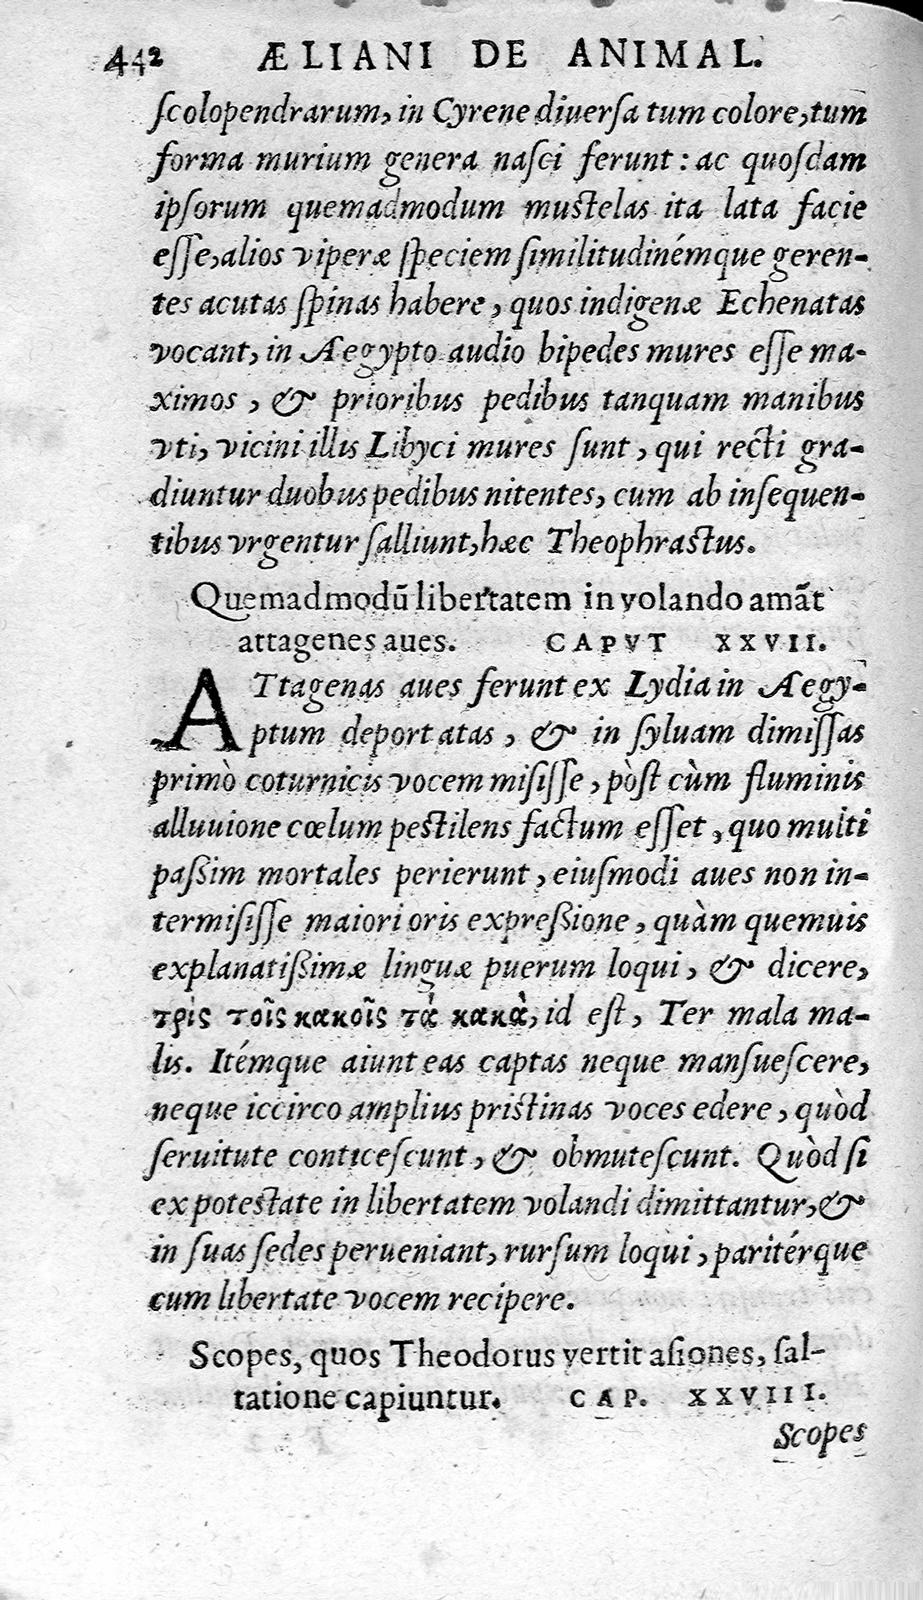 442 ÆLIANI DE ANIMAL.
ſcolopendrarum, in Cyrene diuerſa tum colore, tum
forma murium genera naſci ferunt: ac quoſdam
ipſorum quemadmodum muſtelas ita lata facie
eſſe, alios viperæ ſpeciem ſimilitudinémque geren-
tes acutas ſpinas habere, quos indigenæ Echenatas
vocant, in Aegypto audio bipedes mures eſſe ma-
ximos, & prioribus pedibus tanquam manibus
vti, vicini illis Libyci mures ſunt, qui recti gra-
diuntur duobus pedibus nitentes, cum ab inſequen-
tibus vrgentur ſalliunt, hæc Theophraſtus.
Quemadmodũ libertatem in volando amãt
attagenes aues. CAPVT XXVII.
ATtagenas aues ferunt ex Lydia in Aegy-
ptum deportatas, & in ſyluam dimiſſas
primò coturnicis vocem miſiſſe, pòſt cùm fluminis
alluuione cœlum peſtilens factum eſſet, quo multi
paſsim mortales perierunt, eiuſmodi aues non in-
termiſiſſe maiori oris expreſsione, quàm quemuis
explanatiſsimæ linguæ puerum loqui, & dicere,
τρὶς τοῖς κακοῖς τὰ κακὰ, id eſt, Ter mala ma-
lis. Itémque aiunt eas captas neque manſueſcere,
neque iccirco amplius priſtinas voces edere, quòd
ſeruitute conticeſcunt, & obmuteſcunt. Quòd ſi
ex poteſtate in libertatem volandi dimittantur, &
in ſuas ſedes perueniant, rurſum loqui, paritérque
cum libertate vocem recipere.
Scopes, quos Theodorus vertit aſiones, ſal-
tatione capiuntur. CAP. XXVIII.
Scopes